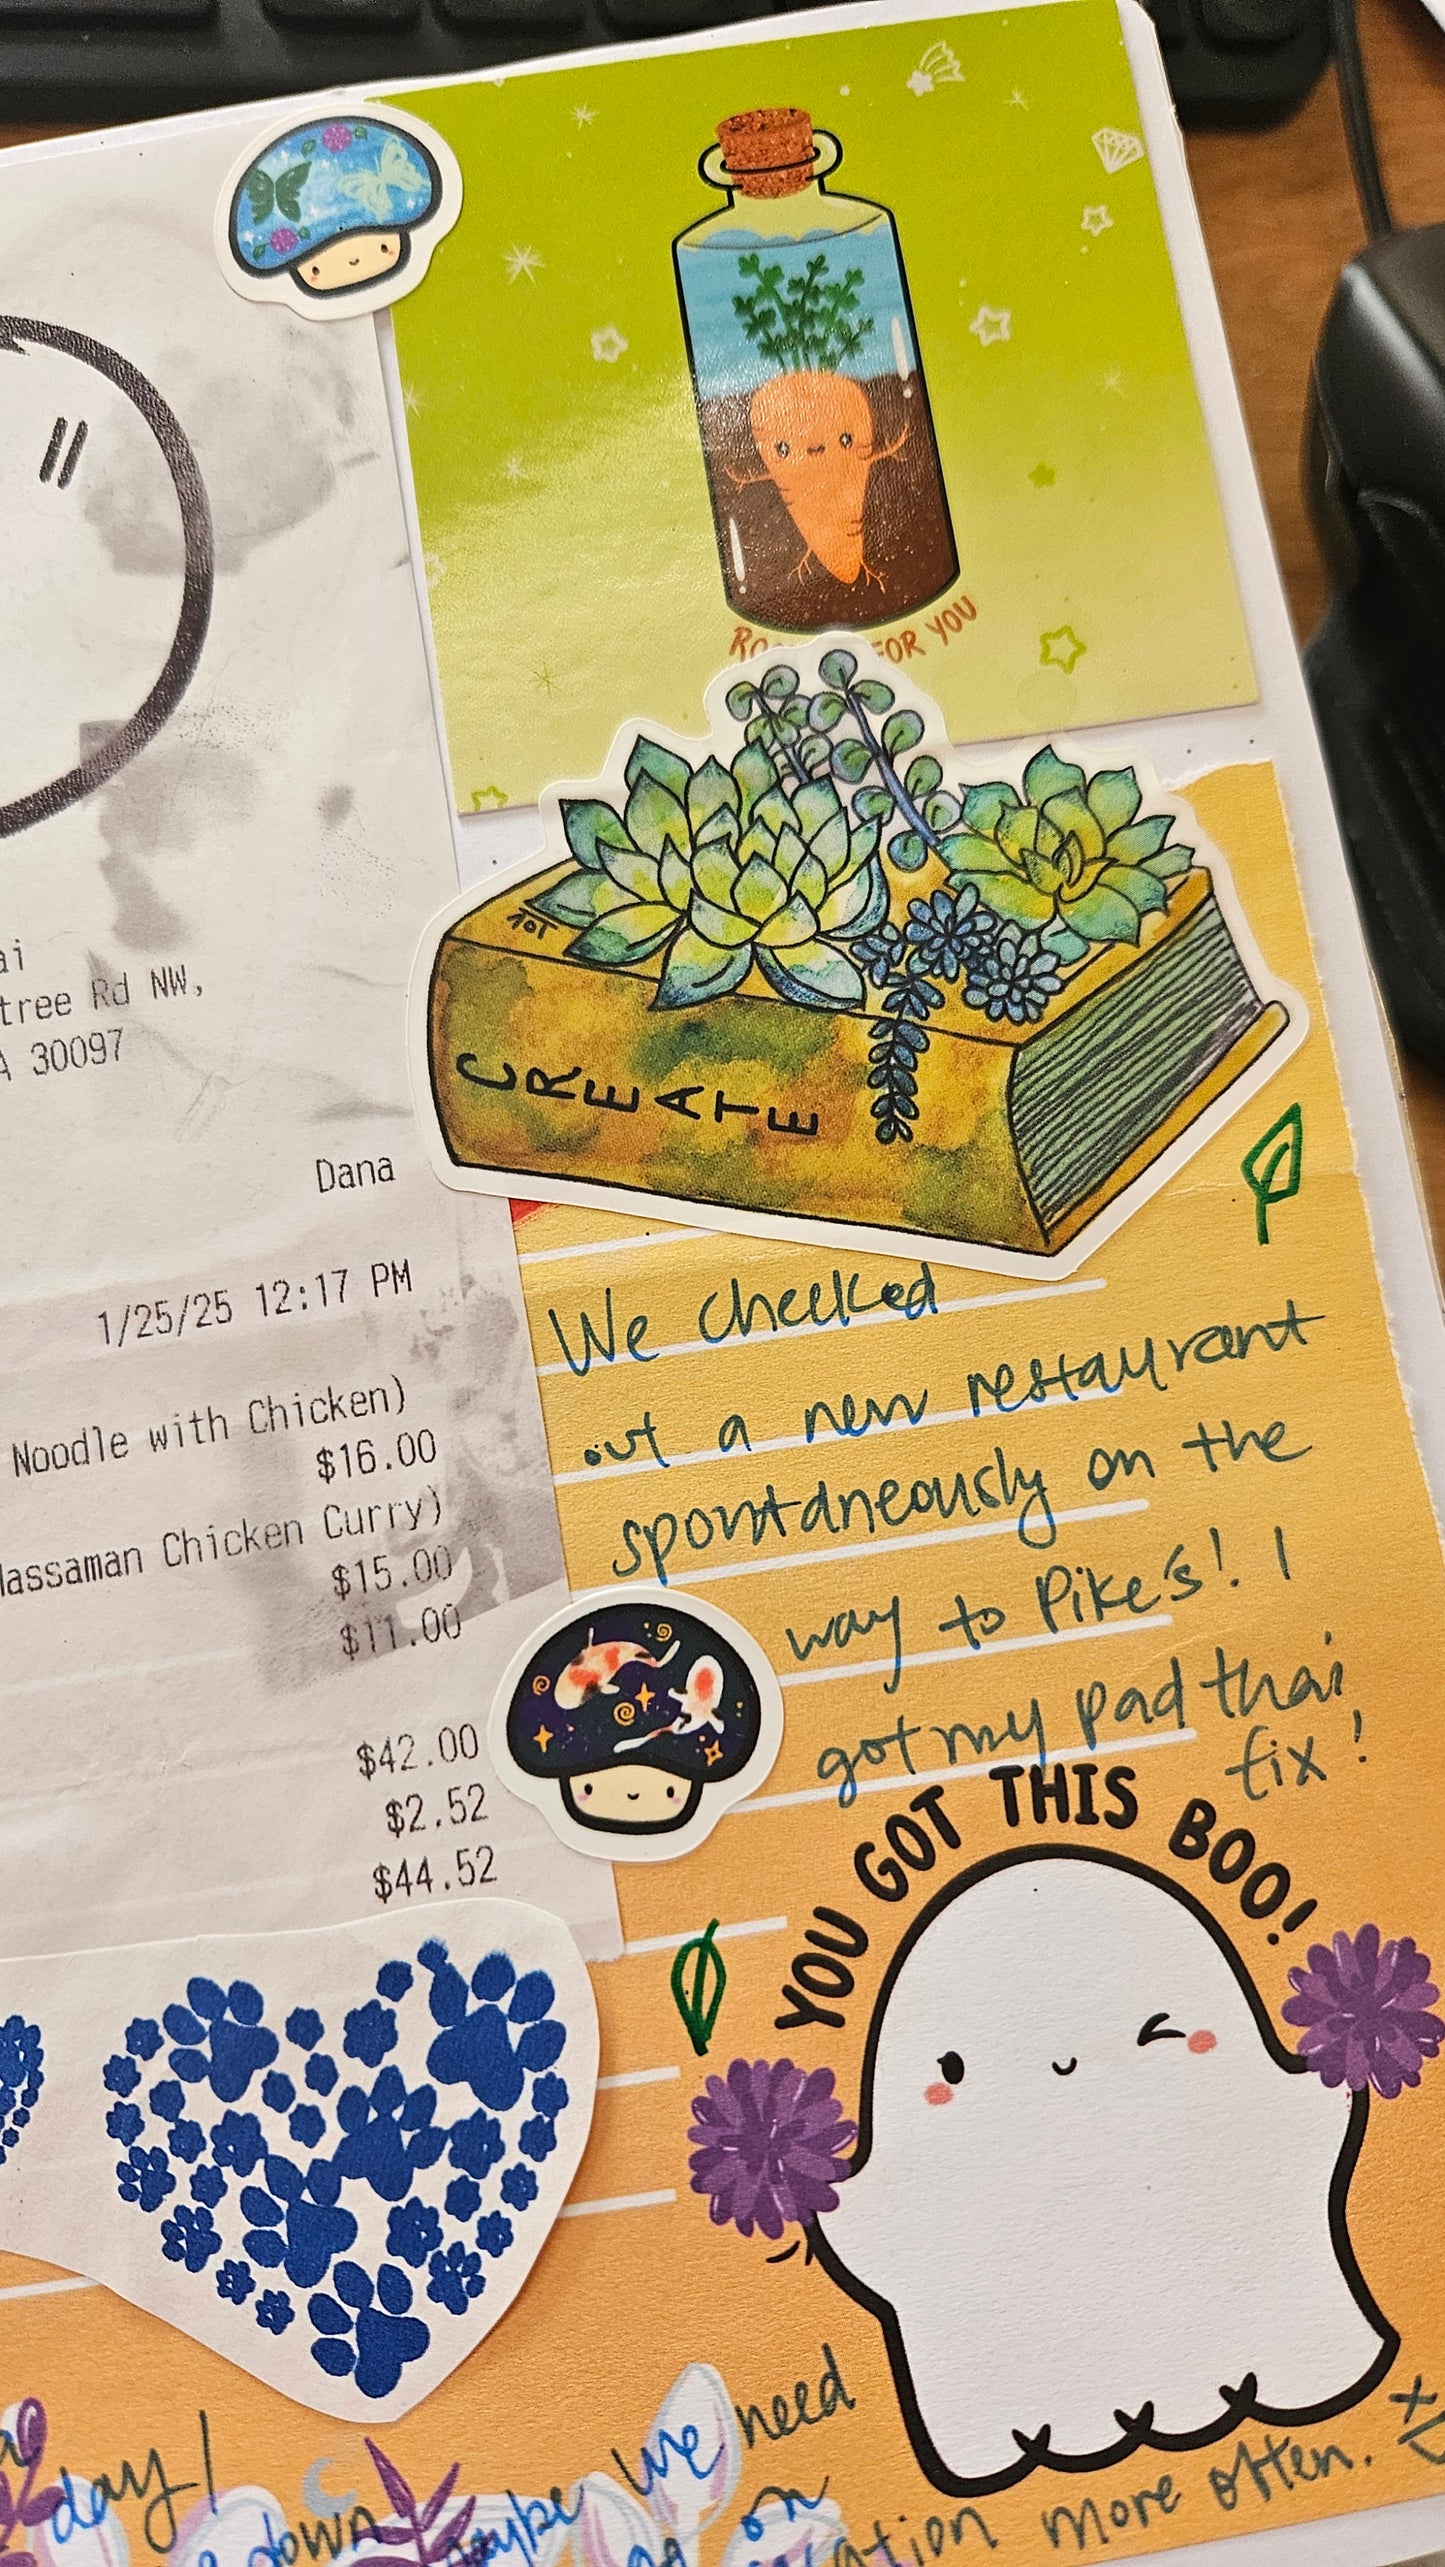 FOR YOU
CREATE
tree Rd NW,
A 30097
Dana
1/25/25 12:17 PM
Noodle with Chicken)
$16.00
Massaman Chicken Curry)
$15.00
$11.00
$42.00
$2.52
$44.52
We checked
out a new restaurant
spontaneously on the
way to Pike's! I
got my pad thai
fix!
YOU GOT THIS BOO!
day!
down maybe we need
on vacation more often.